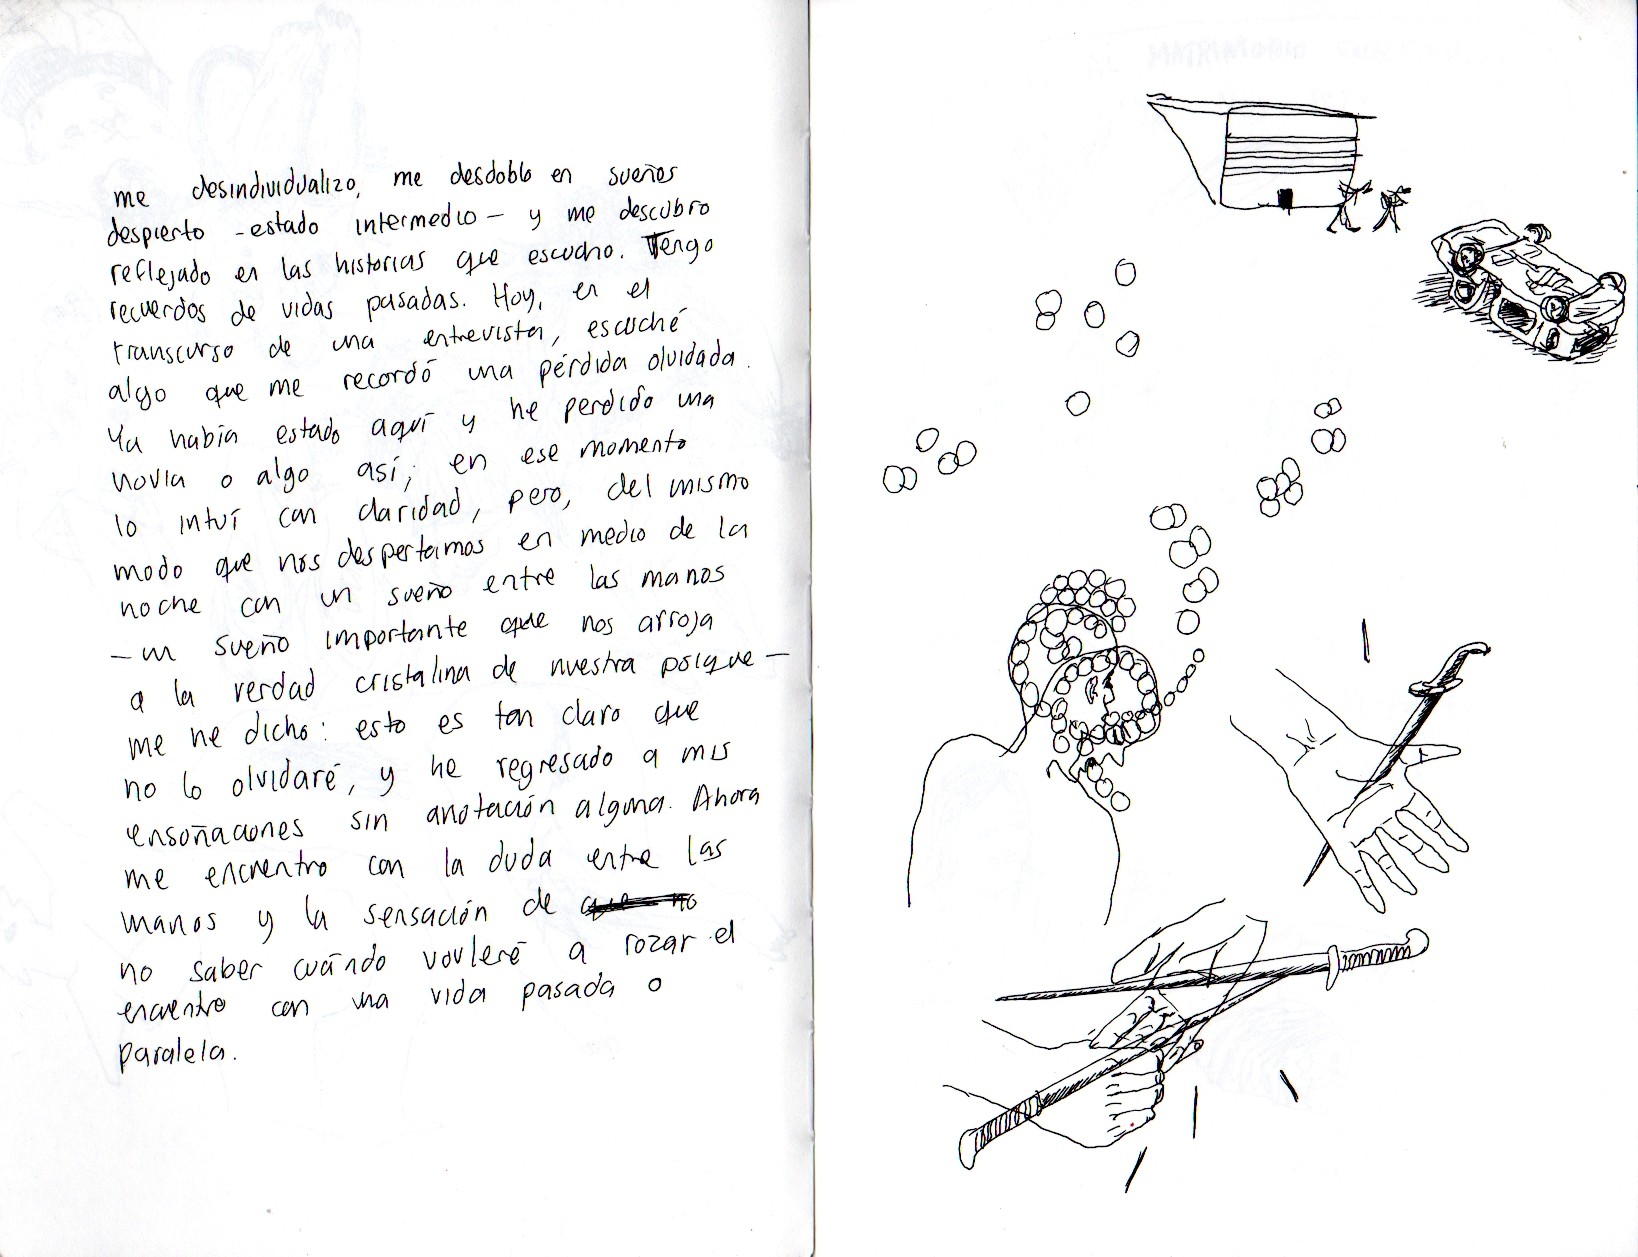 me desindividualizo, me desdoblo en sueños
despierto - estado intermedio - y me descubro
reflejado en las historias que escucho. Tengo
recuerdos de vidas pasadas. Hoy, en el
transcurso de una entrevista, escuché
algo que me recordó una pérdida olvidada.
Ya había estado aquí y he perdido una
novia o algo así; en ese momento
lo intuí con claridad, pero, del mismo
modo que nos despertamos en medio de la
noche con un sueño entre las manos
- un sueño importante que nos arroja
a la verdad cristalina de nuestra psique -
me he dicho: esto es tan claro que
no lo olvidaré, y he regresado a mis
ensoñaciones sin anotación alguna. Ahora
me encuentro con la duda entre las
manos y la sensación de que no
no saber cuándo vovleré a rozar el
encuentro con una vida pasada o
paralela.